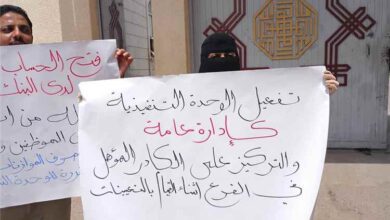 فتح الحساب
لدى البنك
من
الموظفين
صرف الموازنات
للوحدة
تفعيل الوحدة التنفيذية
كإدارة عامة
والتركيز على الكادر المؤهل
في الفرع أثناء القيام بالتعيينات